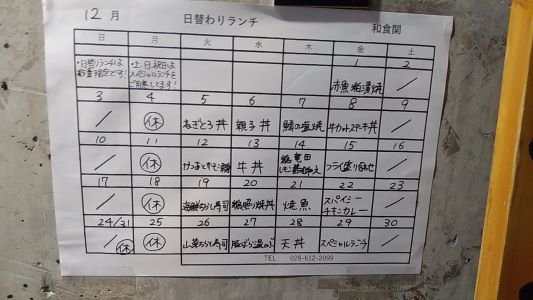 12月 日替わりランチ 和食関
日 月 火 水 木 金 土
1 2
・日替りランチは
数量限定です!
・土、日、祝日は
スペシャルランチを
ご用意してます!
赤魚粕漬焼
3 4 5 6 7 8 9
休 ねぎとろ丼 親子丼 鯖の塩焼 牛カットステーキ丼
10 11 12 13 14 15 16
休 牛丼 フライ盛り合わせ
17 18 19 20 21 22 23
休 海鮮ちらし寿司 焼魚 スパイシー
チキンカレー
24/31 25 26 27 28 29 30
休 休 山菜ちらし寿司 天丼 スペシャルランチ
TEL 028-612-2099